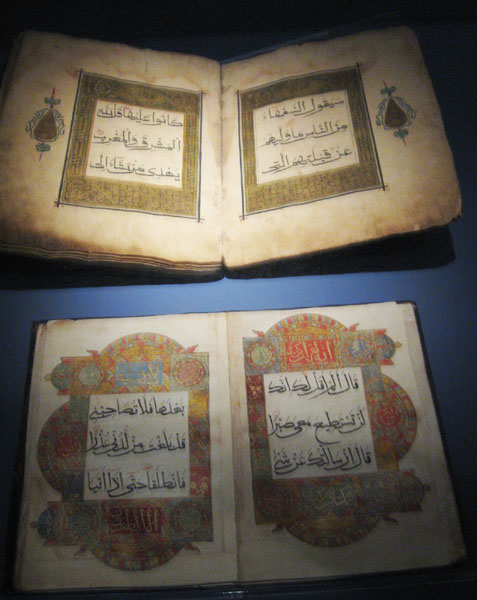 سيقول السفهاء
من الناس ما وليهم
عن قبلتهم التي
كانوا عليها قل لله
المشرق والمغرب
يهدي من يشاء الى
قال الم اقل لك انك
لن تستطيع معي صبرا
قال ان سالتك عن شئ
بعدها فلا تصاحبني
قد بلغت من لدني عذرا
فانطلقا حتى اذا اتيا